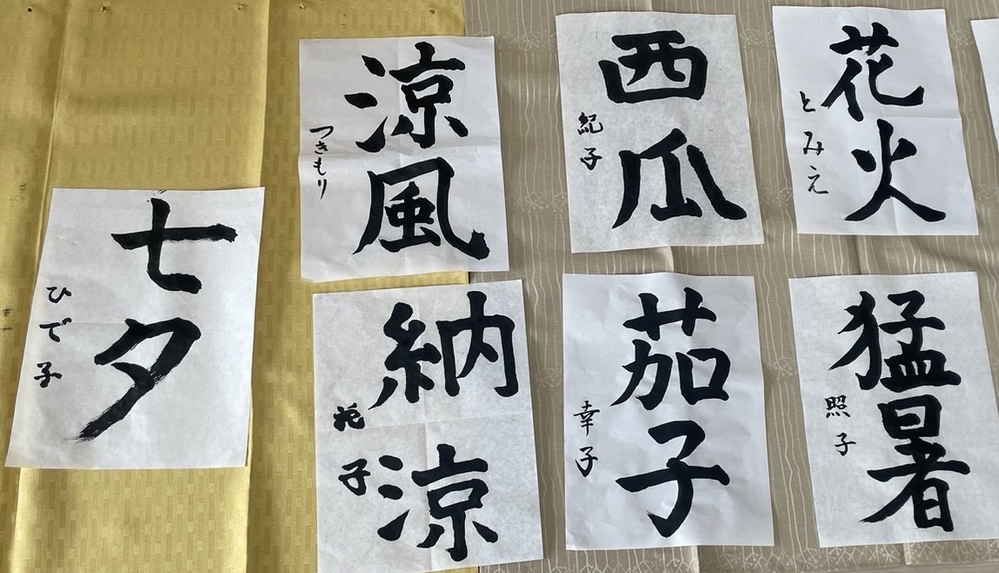 花火
とみえ
猛暑
照子
西瓜
紀子
茄子
幸子
涼風
つきもり
納涼
花子
七夕
ひで子